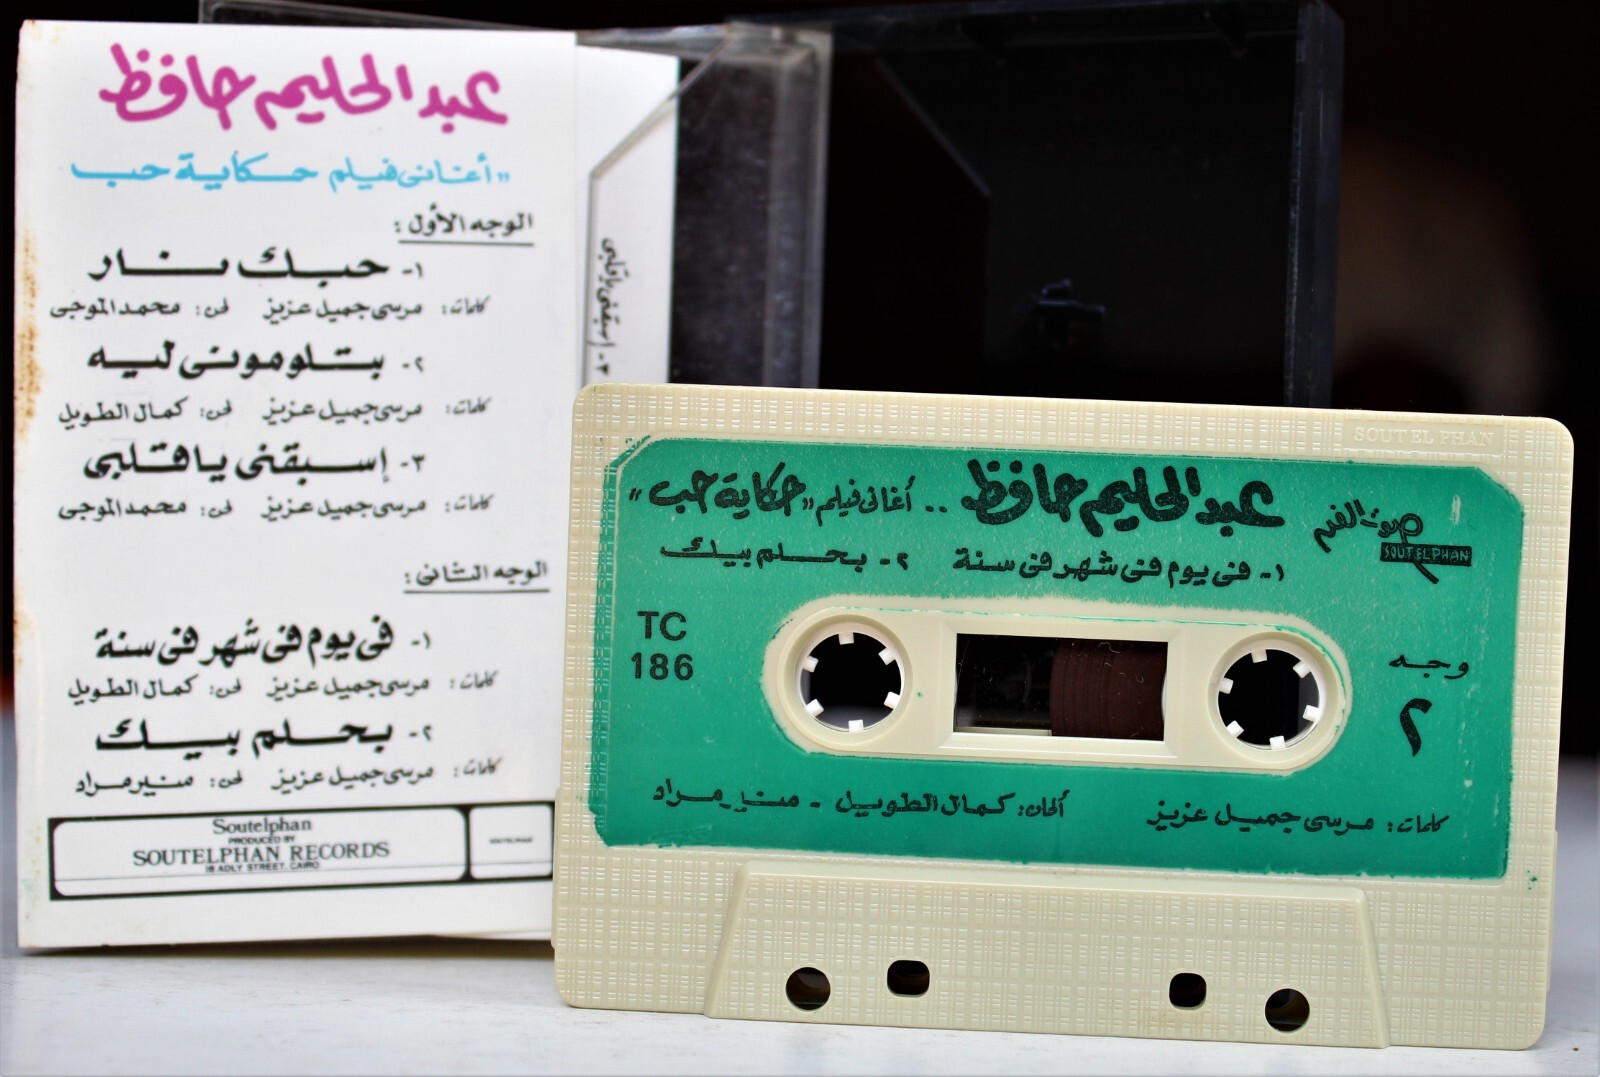 عبد الحليم حافظ
"أغانى فيلم حكاية حب
الوجه الأول :
١- حبك نار
كلمات : مرسى جميل عزيز لحن : محمد الموجى
٢- بتلومونى ليه
كلمات : مرسى جميل عزيز لحن : كمال الطويل
٣- إسبقنى ياقلبى
كلمات : مرسى جميل عزيز لحن : محمد الموجى
الوجه الثانى :
١- فى يوم فى شهر فى سنة
كلمات : مرسى جميل عزيز لحن : كمال الطويل
٢- بحلم بيك
كلمات : مرسى جميل عزيز لحن : منير مراد
Soutelphan
PRODUCED BY
SOUTELPHAN RECORDS
18 ADLY STREET, CAIRO
SOUTELPHAN
٣- إسبقنى ياقلبى
SOUTEL PHAN
صوت الفن
SOUTELPHAN
عبد الحليم حافظ .. أغانى فيلم "حكاية حب"
١- فى يوم فى شهر فى سنة ٢- بحلم بيك
TC
186
وجه
٢
كلمات : مرسى جميل عزيز ألحان : كمال الطويل - منير مراد